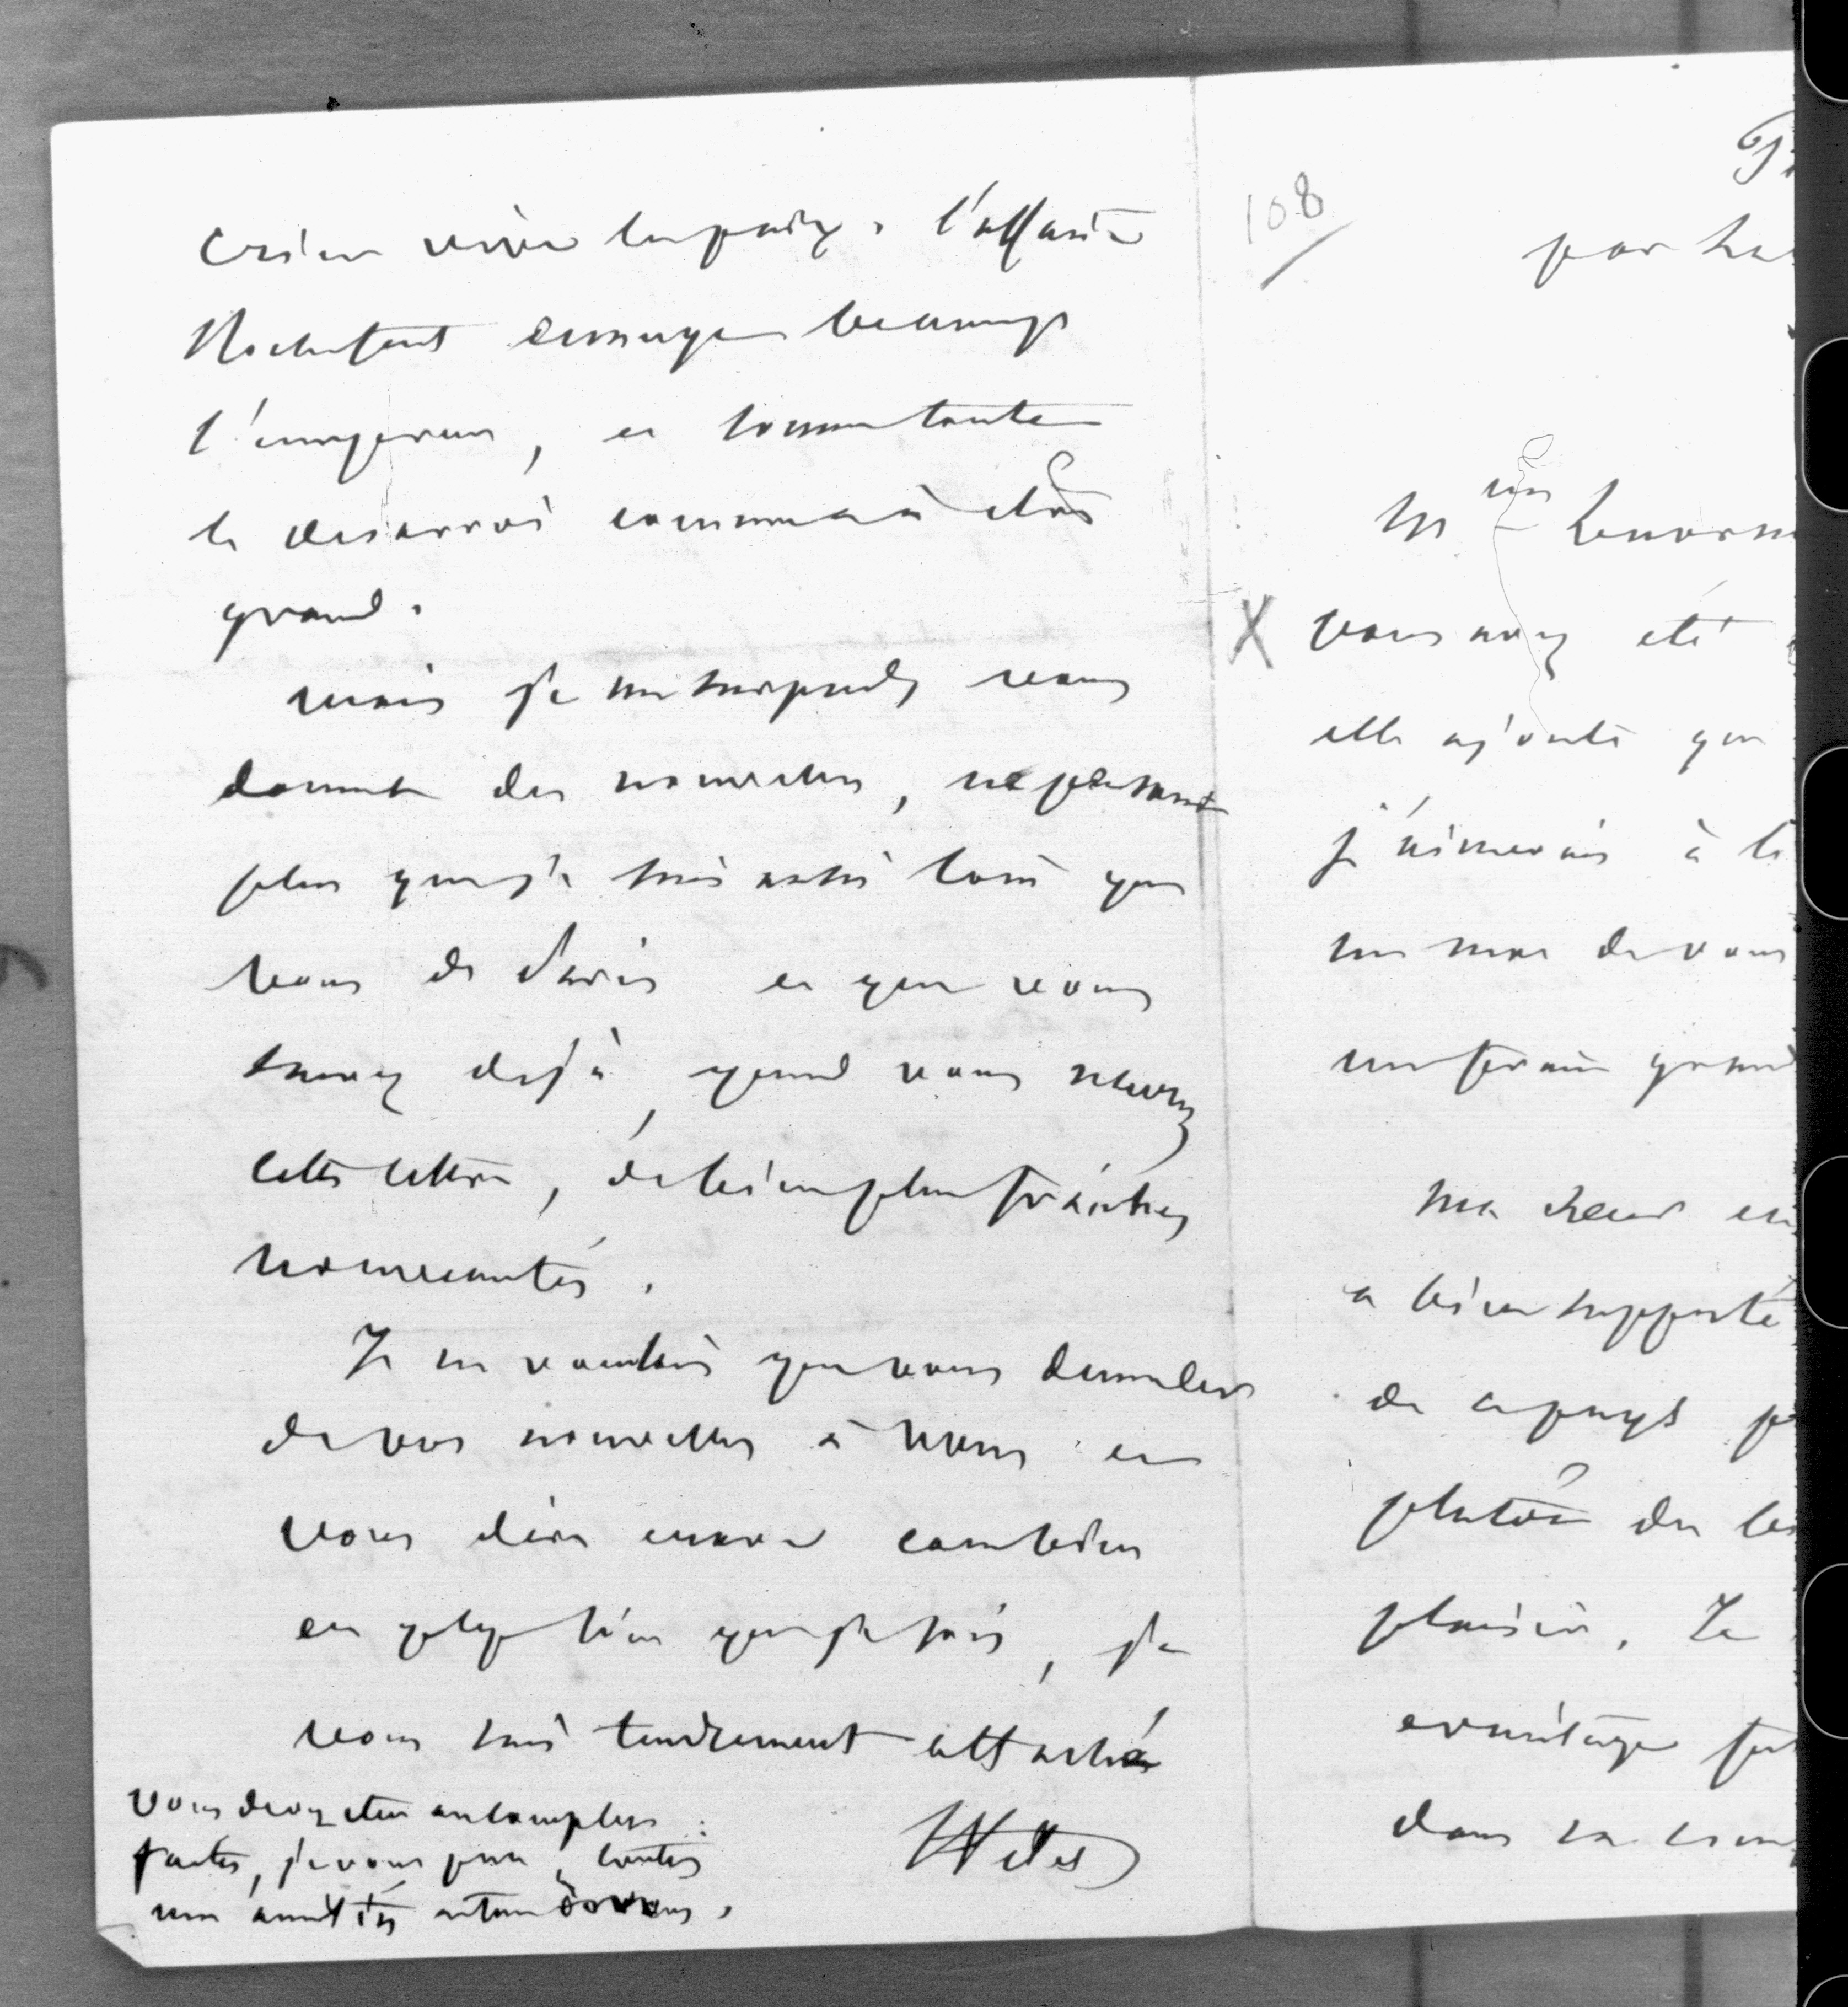 crier vive la paix. l'affaire
Rochefort ennuye beaucoup
l'empereur, en somme toute
le desarroi commence à être
grand.
mais je me surprends vous
donnant des nouvelles, ne pensant
plus que je suis aussi loin que
vous de Paris et que vous
saurez dejà, quand vous recevrez
cette lettre, de bien plus fraiches
nouveautés.
Je ne voudrais que vous demander
de vos nouvelles à tous et
vous dire encore combien
en qlq lieu que je sois, je
vous suis tendrement attaché
vous devez etre au complet :
faites, je vous prie, toutes
mes amitiés autour de vous.
108
par
M
X vous avez été
elle ajoute que
j'aimerais à
un mot de vous
me ferait grand
Ma soeur
a bien supporté
de ce pays
plutôt de
plaisir. Je
ermitage
dans sa